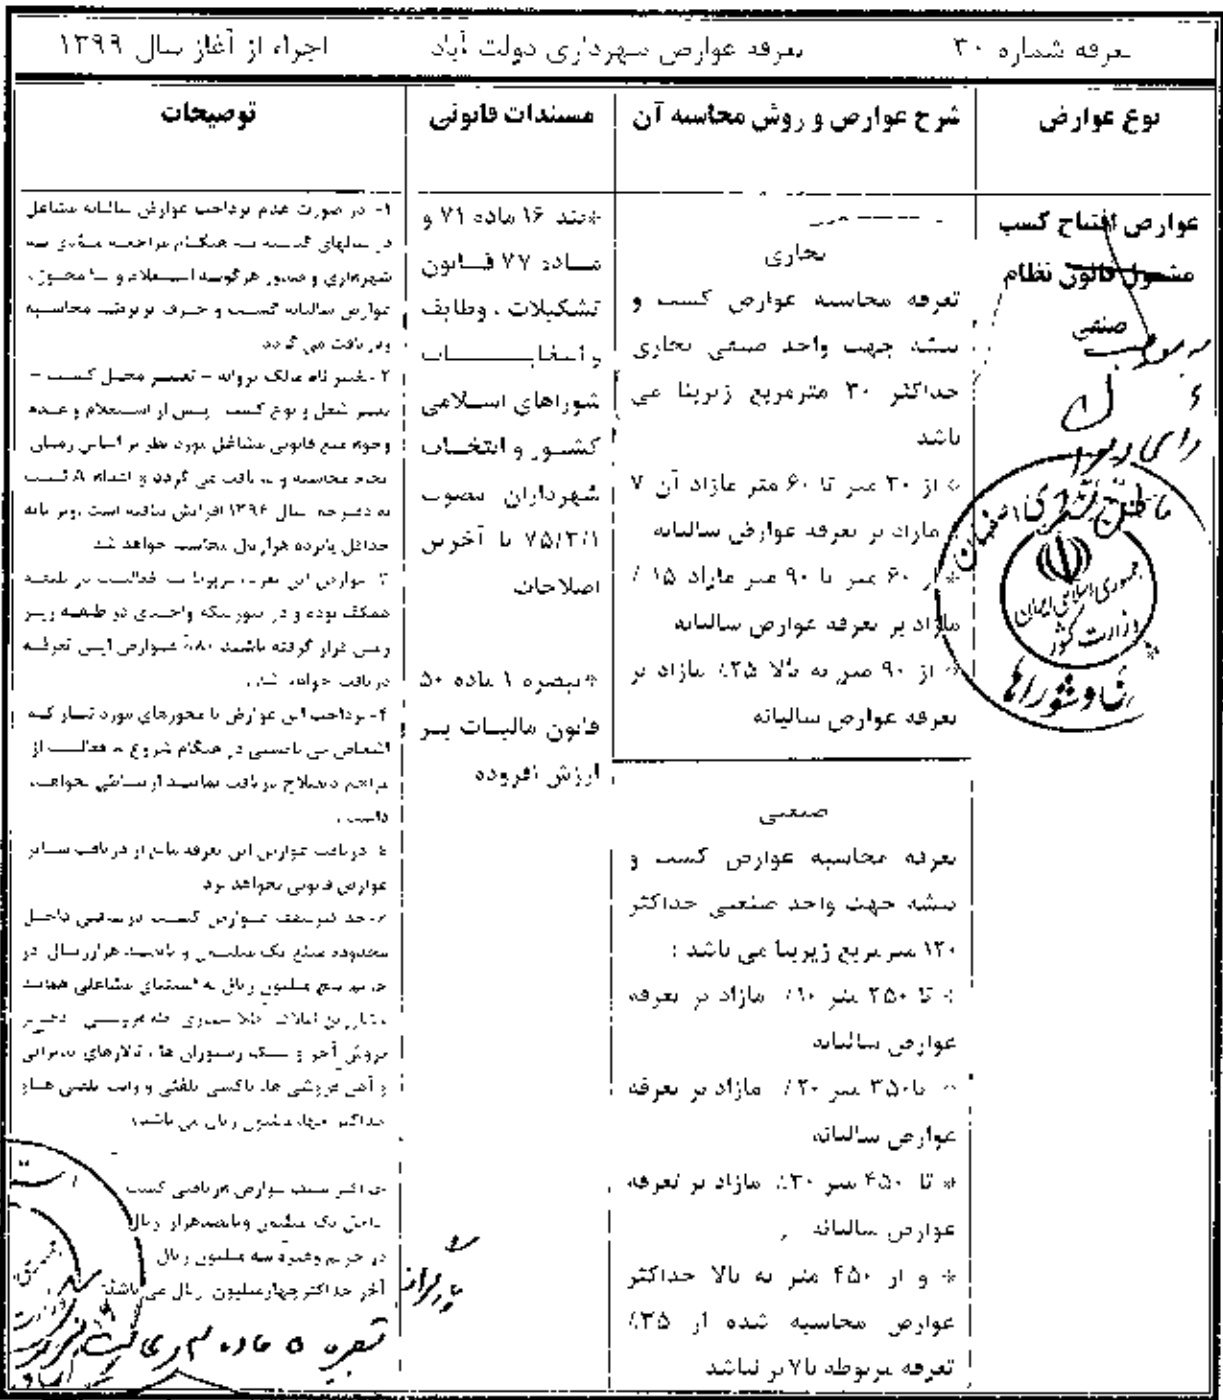 تعرفه شماره ۳۰
تعرفه عوارض شهرداری دولت آباد
اجراء از آغاز سال ۱۳۹۹
نوع عوارض
شرح عوارض و روش محاسبه آن
مستندات قانونی
توضیحات
عوارض افتتاح کسب
مشمول قانون نظام
صنفی
تجاری
تعرفه محاسبه عوارض کسب و
پیشه جهت واحد صنفی تجاری
حداکثر ۳۰ مترمربع زیربنا می
باشد
* از ۳۰ متر تا ۶۰ متر مازاد آن ۷
مازاد بر تعرفه عوارض سالیانه
* از ۶۰ متر تا ۹۰ متر مازاد ۱۵ ٪
مازاد بر تعرفه عوارض سالیانه
* از ۹۰ متر به بالا ۲۵٪ مازاد بر
تعرفه عوارض سالیانه
صنعتی
تعرفه محاسبه عوارض کسب و
پیشه جهت واحد صنعتی حداکثر
۱۲۰ متر مربع زیربنا می باشد :
* تا ۲۵۰ متر ۱۰٪ مازاد بر تعرفه
عوارض سالیانه
* تا ۳۵۰ متر ۲۰٪ مازاد بر تعرفه
عوارض سالیانه
* تا ۴۵۰ متر ۳۰٪ مازاد بر تعرفه
عوارض سالیانه
* و از ۴۵۰ متر به بالا حداکثر
عوارض محاسبه شده از ۳۵٪
تعرفه مربوطه بالاتر نباشد
*بند ۱۶ ماده ۷۱ و
ماده ۷۷ قانون
تشکیلات ، وظایف
و انتخابات
شوراهای اسلامی
کشور و انتخاب
شهرداران مصوب
۷۵/۳/۱ با آخرین
اصلاحات
*تبصره ۱ ماده ۵۰
قانون مالیات بر
ارزش افزوده
۱- در صورت عدم پرداخت عوارض سالیانه مشاغل
در سالهای گذشته به هنگام مراجعه مؤدی به
شهرداری و صدور هرگونه استعلام و یا مجوز ،
عوارض سالیانه کسب و حرف مربوطه محاسبه
ودریافت می گردد
۲- تغییر نام مالک پروانه – تغییر محل کسب –
تغییر شغل و نوع کسب پس از استعلام و عدم
وجود منع قانونی مشاغل مورد نظر بر اساس
محاسبه و دریافت می گردد
سال ۱۳۹۶ افزایش یافته است
حداقل پانزده هزار ریال محاسبه خواهد شد
۳- عوارض این تعرفه مربوط به فعالیت در طبقه
همکف بوده و در صورتیکه واحدی در طبقه زیر
زمین قرار گرفته باشد ۸۰٪ عوارض این تعرفه
دریافت خواهد شد .
۴- پرداخت این عوارض با مجوزهای مورد نیاز که
اشخاص می بایستی در هنگام شروع به فعالیت از
مراجع ذیصلاح دریافت نمایند ارتباطی نخواهد
داشت .
۵- دریافت عوارض این تعرفه مانع از دریافت سایر
عوارض قانونی نخواهد بود
عوارض کسب دریافتی داخل
محدوده مبلغ یک میلیون و پانصد هزارریال در
حریم پنج میلیون ریال به استثنای مشاغلی همانند
مشاورین املاک
فروش آجر و سنگ رستوران ها ، تالارهای پذیرایی
و آهن فروشی ها، تاکسی تلفنی و وانت تلفنی ها و
حداکثر چهار میلیون ریال می باشد
حداکثر سقف عوارض دریافتی کسب
داخل یک میلیون وپانصدهزار ریال
در حریم وغیره سه میلیون ریال
آخر حداکثر چهارمیلیون ریال می باشد
جمهوری اسلامی ایران
وزارت کشور
تبصره ۵ ماده